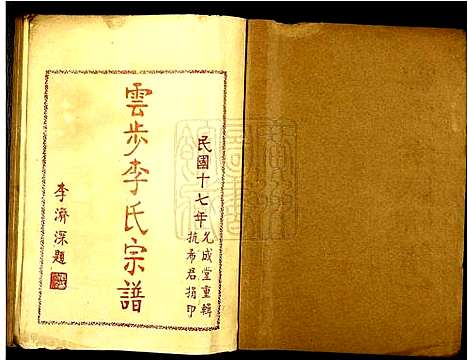 民國十七年允成堂重輯
抗希君捐印
雲步李氏宗譜
李濟深題